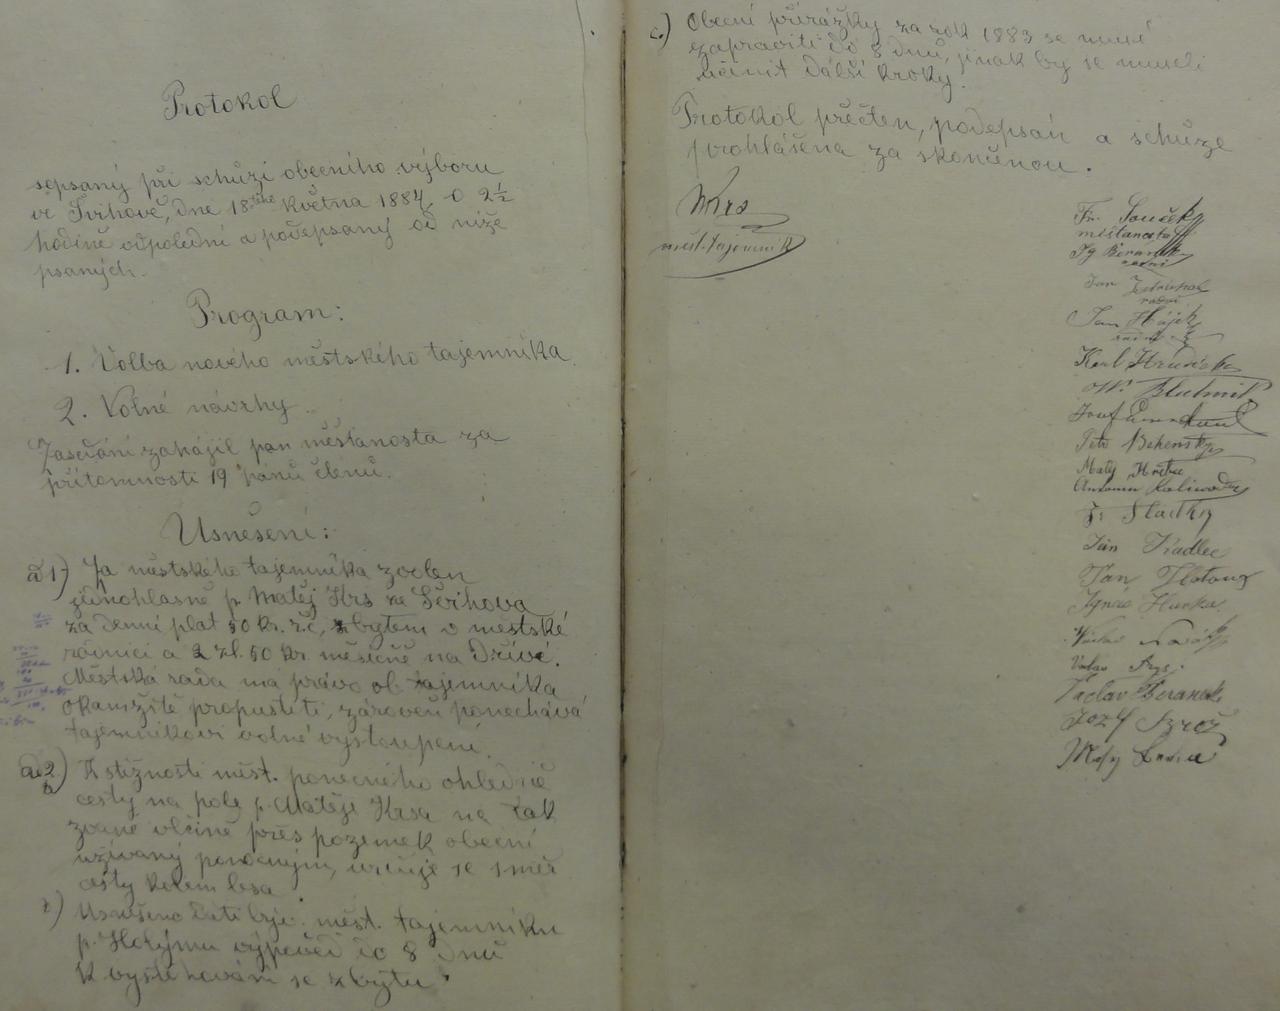 Protokol
sepsaný při schůzi obecního výboru
ve Švihově, dne 18tého května 1884 o 2½
hodině odpolední a podepsaný od níže
psaných.
Program:
1. Volba nového městského tajemníka
2. Volné návrhy.
Zasedání zahájil pan měšťanosta za
přítomnosti 19 pánů členů.
Usnešení:
ad 1) Za městského tajemníka zvolen
jednohlasně p. Matěj Krs ze Švihova
za denní plat 50 kr. ř.č, z bytem v městské
radnici a 2 zl. 50 kr. měsíčně na dříví.
Městská rada má právo ob. tajemníka
okamžitě propustiti, zároveň ponechává
tajemníkovi volné vystoupení.
ad 2) K stížnosti měst. ponocného ohledně
a
cesty na pole p. Matěje Krsa na tak
zvané vlčině přes pozemek obecní
užívaný ponocným, určuje se směr
cesty kolem lesa
b) Usnešeno dáti býv. měst. tajemníku
p. Holýmu výpověď do 8 dnů
k vystěhování se z bytu.
c.) Obecní přirážky za rok 1883 se musí
zapraviti do 8 dnů, jinak by se museli
učinit další kroky.
Protokol přečten, podepsán a schůze
prohlášena za skončenou.
MKrs
měst. tajemník
Fr. Souček
měšťanosta
Ig Beranek
radní
Jan
radní
Jan Hájek
radní
Karl
Josef
Petr
Matěj
Antonín Kaliwoda
Fr Sladký
Jan Kadlec
Jan
Ignác Hurka
Václav Novák
Václav
Václav Beranek
Jozef
Matěj